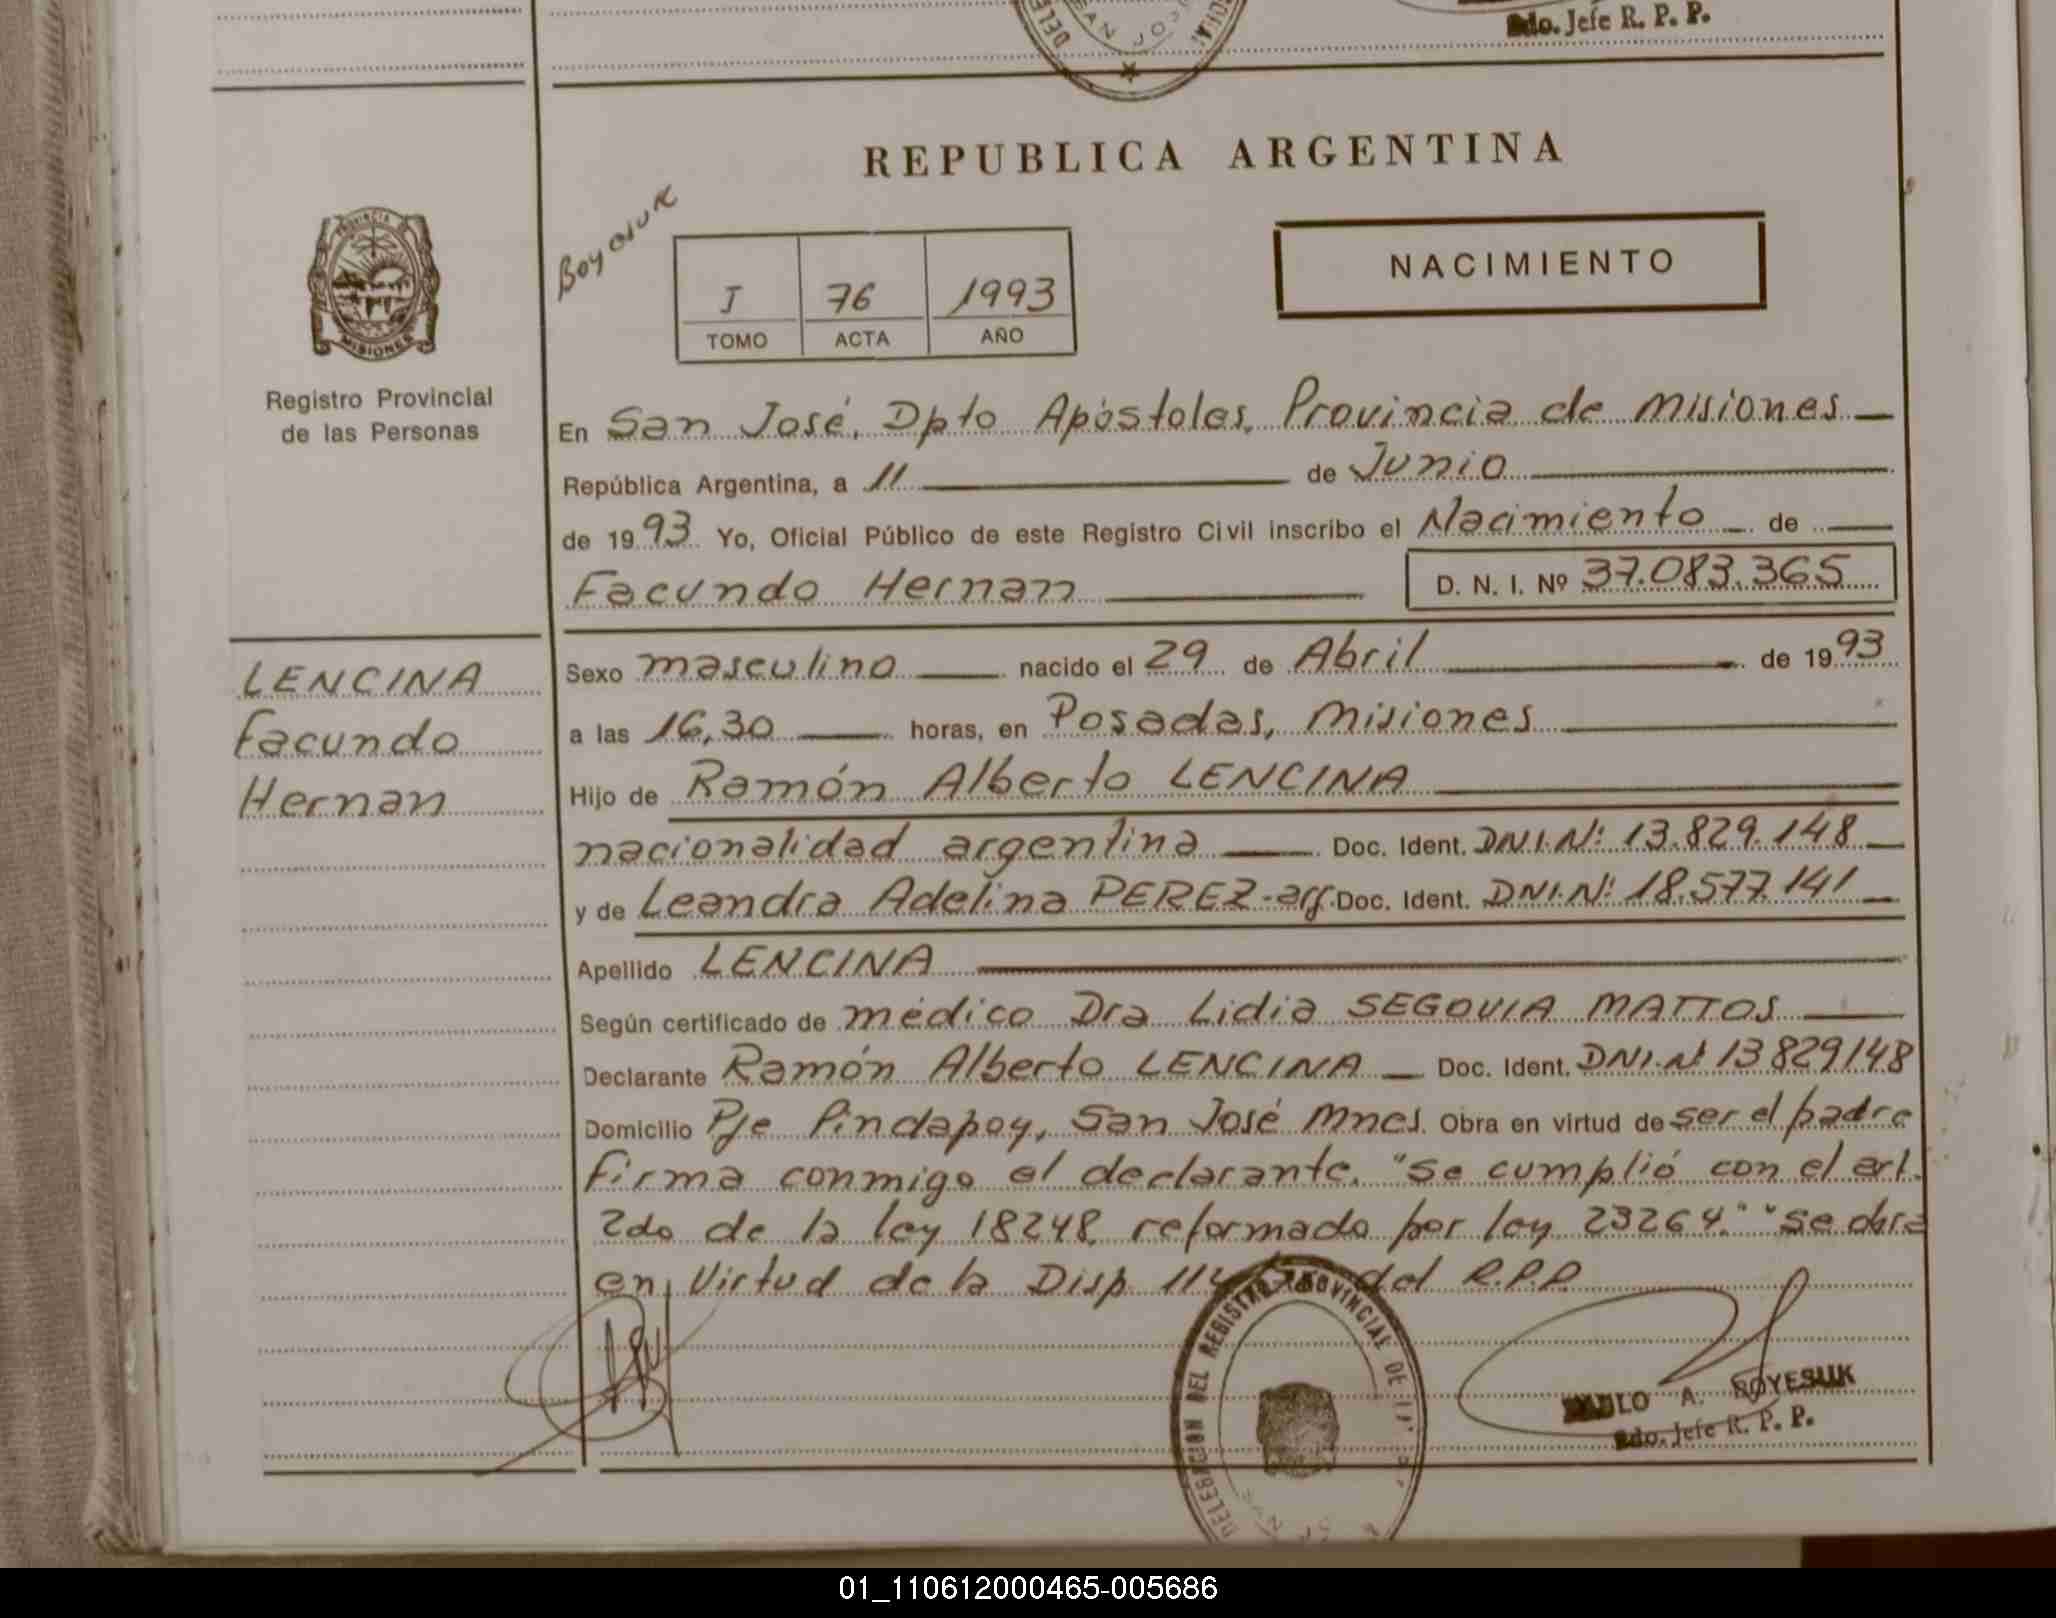 DELE SAN JOSE
Sdo. Jefe R. P. P.
REPUBLICA ARGENTINA
PROVINCIA
MISIONES
Registro Provincial
de las Personas
Boyesuk
I 76 1993
TOMO ACTA AÑO
NACIMIENTO
En San José, Dpto Apóstoles, Provincia de Misiones
República Argentina, a 11 de Junio
de 1993 Yo, Oficial Público de este Registro Civil inscribo el Nacimiento de
Facundo Hernan D. N. I. Nº 37.083.365
LENCINA
Facundo
Hernan
Sexo masculino nacido el 29 de Abril de 1993
a las 16,30 horas, en Posadas, Misiones
Hijo de Ramón Alberto LENCINA
nacionalidad argentina Doc. Ident. DNI.Nº 13.829.148
y de Leandra Adelina PEREZ-arg. Doc. Ident. DNI.Nº 18.577.141
Apellido LENCINA
Según certificado de médico Dra Lidia SEGOVIA MATTOS
Declarante Ramón Alberto LENCINA Doc. Ident. DNI.Nº 13829148
Domicilio Pje Pindapoy, San José Mnes. Obra en virtud de ser el padre
Firma conmigo el declarante. "Se cumplió con el art.
2do de la ley 18248 reformado por ley 23264." "Se obra
en virtud de la Disp. del R.P.P.
DELEGACION DEL REGISTRO PROVINCIAL DE
A. BOYESUK
Sdo. Jefe R. P. P.
01_110612000465-005686